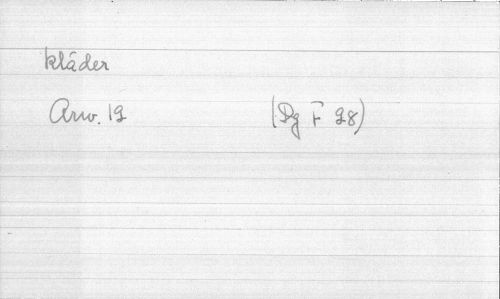 kläder
Arw. 19 (Dg F 98)